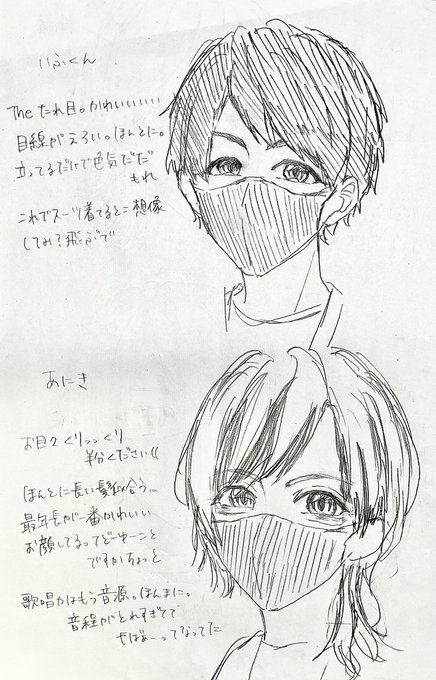 いふくん
The たれ目。かわいいいいい
目線がえろい。ほんとに。
立ってるだけで色気だだ
もれ
これでスーツ着てるとこ想像
してみ?飛ぶで
あにき
お目々くりっっくり
半分ください((
ほんとに長い髪似合う…
最年長が一番かわいい
お顔してるってどーゆーこと
ですかちょっと
歌唱力はもう音源。ほんまに。
音程がとれすぎてて
やばぁーってなってた